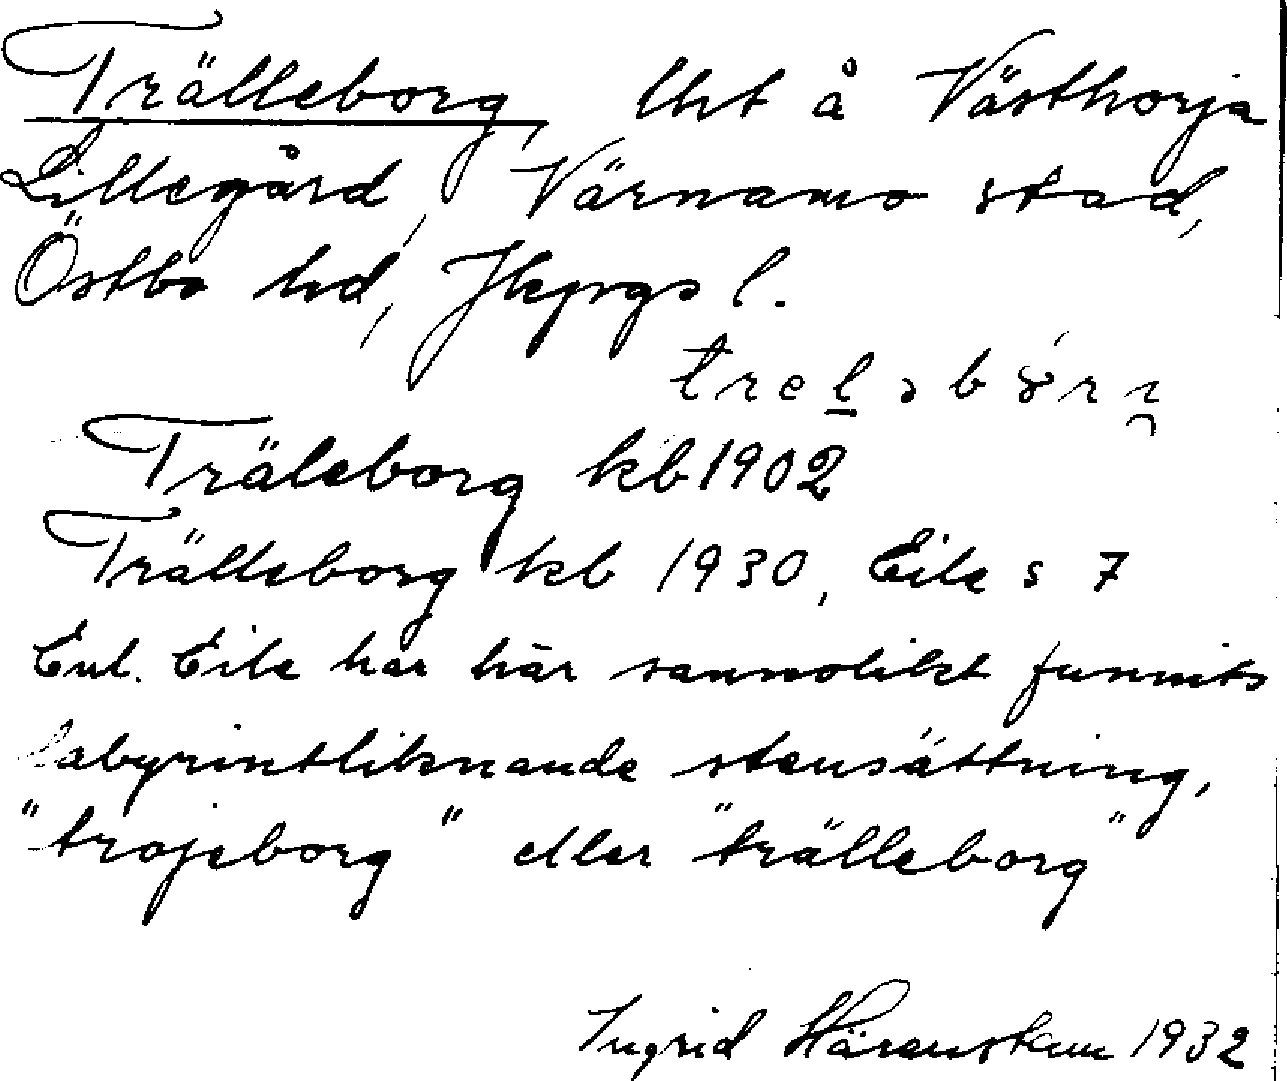 Trälleborg, lht å Västhorja
Lillegård, Värnamo stad,
Östbo hd, Jkpgs l.
Träleborg kb 1902
Trälleborg kb 1930, Eile s 7
Enl. Eile har här sannolikt funnits
labyrintliknande stensättning,
"trojeborg" eller "trälleborg"
Ingrid Härenstam 1932